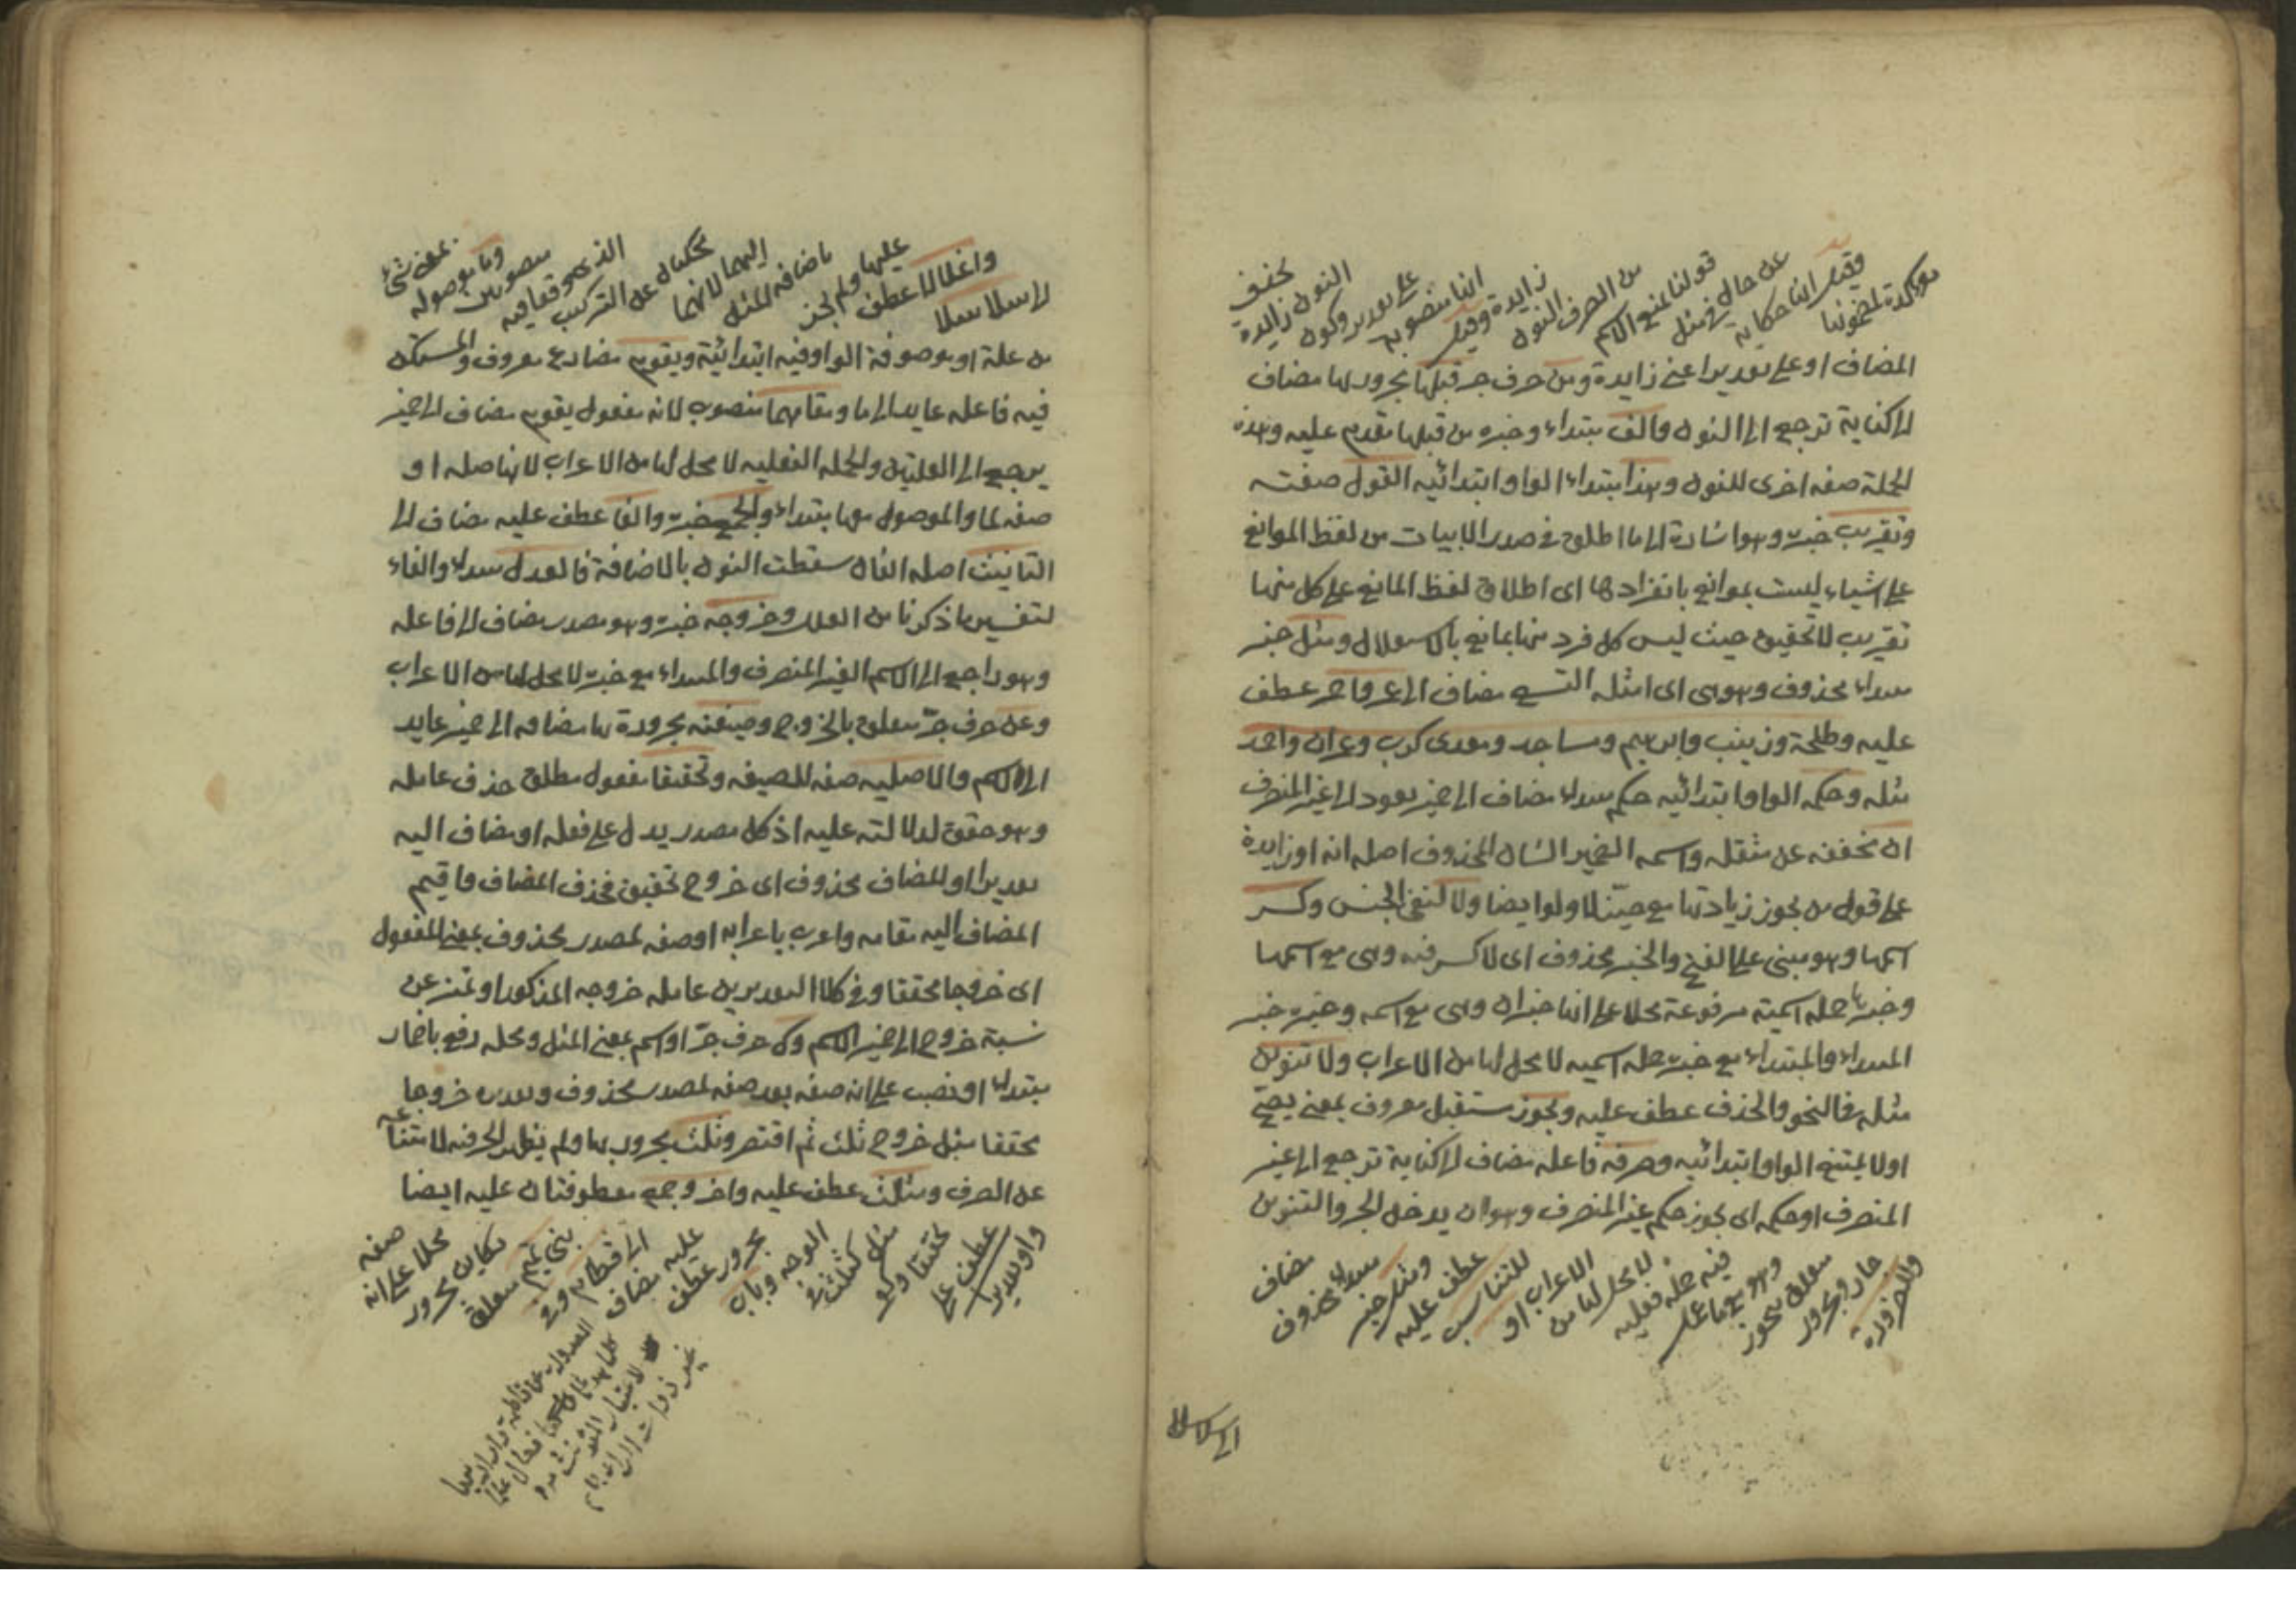 مؤكدة لمضمونها
وقيل انها حكاية
عن حال في مثل
قولنا منع الاسم
من الصرف النون
زايدة وقيل
انها منصوبة
على تقدير وكون
النون زايدة
فحذف
المضاف او على تقدير اعني زايدة ومن حرف جر قبلها مجرور بها مضاف
الى كناية ترجع الى النون والف مبتداء وخبره من قبلها مقدم عليه وهذه
الجملة صفه اخرى للنون وهذا مبتداء الواو ابتدائيه القول صفته
وتقريب خبره وهو اشارة الى ما اطلق في صدر الابيات من لفظ الموانع
على اشياء ليست بموانع بانفرادها اى اطلاق لفظ المانع على كل منها
تقريب لا تحقيق حيث ليس كل فرد منها بمانع بالاستقلال ومثل خبر
مبتداء محذوف وهو هى اى امثله التسع مضاف الى عمر واحمر عطف
عليه وطلحة وزينب وابرهيم ومساجد ومعدى كرب وعمران واحمد
مثله وحكمه الواو ابتدائيه حكم مبتداء مضاف الى ضمير يعود الى غير المنصرف
ان مخففه عن مثقله واسمه الضمير الشان المحذوف اصله انه او زايدة
على قول من يجوز زيادتها مع حيّز لا ولو ايضا ولا لنفى الجنس وكسر
اسمها وهو مبنى على الفتح والخبر محذوف اى لا كسر فيه وهى مع اسمها
وخبرها جمله اسمية مرفوعة محلا على انها خبر ان وهى مع اسمه وخبره خبر
المبتداء والمبتداء مع خبره جمله اسميه لا محل لها من الاعراب ولا تنوين
مثله فالنحو والحذف عطف عليه ويجوز مستقبل معروف بمعنى يصحّ
اولا يمتنع الواو ابتدائيه وصرفه فاعله مضاف الى كناية ترجع الى غير
المنصرف او حكمه اى يجوز حكم غير المنصرف وهو ان يدخل الجر والتنوين
وللضرورة
جار ومجرور
متعلق بيجوز
وهو مع فاعله
فيه جملة فعليه
لا محل لها من
الاعراب او
للتناسب
عطف عليه
ومثل خبر
مبتداء محذوف
مضاف
الى سلاسلا
لا سلاسلا
واغلالا عطف
عليها ولم يجز
باضافه المثل
اليهما لانهما
محكيان عن التركيب
الذى وقعا فيه
منصوبين
وما موصوله
بمعنى شئ
من علة او موصوفة الواو فيه ابتدائية ويقوم مضارع معروف والمستكن
فيه فاعله عايد الى ما ومقامهما منصوب لانه مفعول يقوم مضاف الى ضمير
يرجع الى العلتين والجمله الفعليه لا محل لها من الاعراب لانها صله او
صفه لما والموصول معها مبتداء والجمع خبره والفا عطف عليه مضاف الى
التانيث اصله الفان سقطت النون بالاضافة فالعدل مبتداء والفاء
لتفسير ما ذكرنا من العلل وخروجه خبره وهو مصدر مضاف الى فاعله
وهو راجع الى الاسم الغير المنصرف والمبتداء مع خبره لا محل لها من الاعراب
وعن حرف جرّ متعلق بالخروج وصيغته مجرورة بها مضافه الى ضمير عايد
الى الاسم والاصليه صفه للصيغه وتحقيقا مفعول مطلق حذف عامله
وهو حقق لدلالته عليه اذ كل مصدر يدل على فعله او مضاف اليه
تقديرا او المضاف محذوف اى خروج تحقيق فحذف المضاف واقيم
المضاف اليه مقامه واعرب باعرابه او صفه لمصدر محذوف بمعنى المفعول
اى خروجا محققا وفي كلا التقديرين عامله خروجه المذكور او تميز عن
نسبة خروج الى ضمير الاسم وك حرف جرّ او اسم بمعنى المثل ومحله رفع باضمار
مبتداء او نصب على انه صفه بعد صفه لمصدر محذوف وتقديره خروجا
محققا مثل خروج ثلث ثم اقتصر وثلث مجرور بها ولم يظهر الجر فيه لامتناعه
عن الصرف ومثلث عطف عليه واخر وجمع معطوفتان عليه ايضا
واو تقديرا
عطف على
تحقيقا وكو
مثل كثلث في
الوجه وباب
مجرور عطف
عليه مضاف
الى قطام وفي
بني تميم متعلق
بكاين مجرور
محلا على انه
صفه